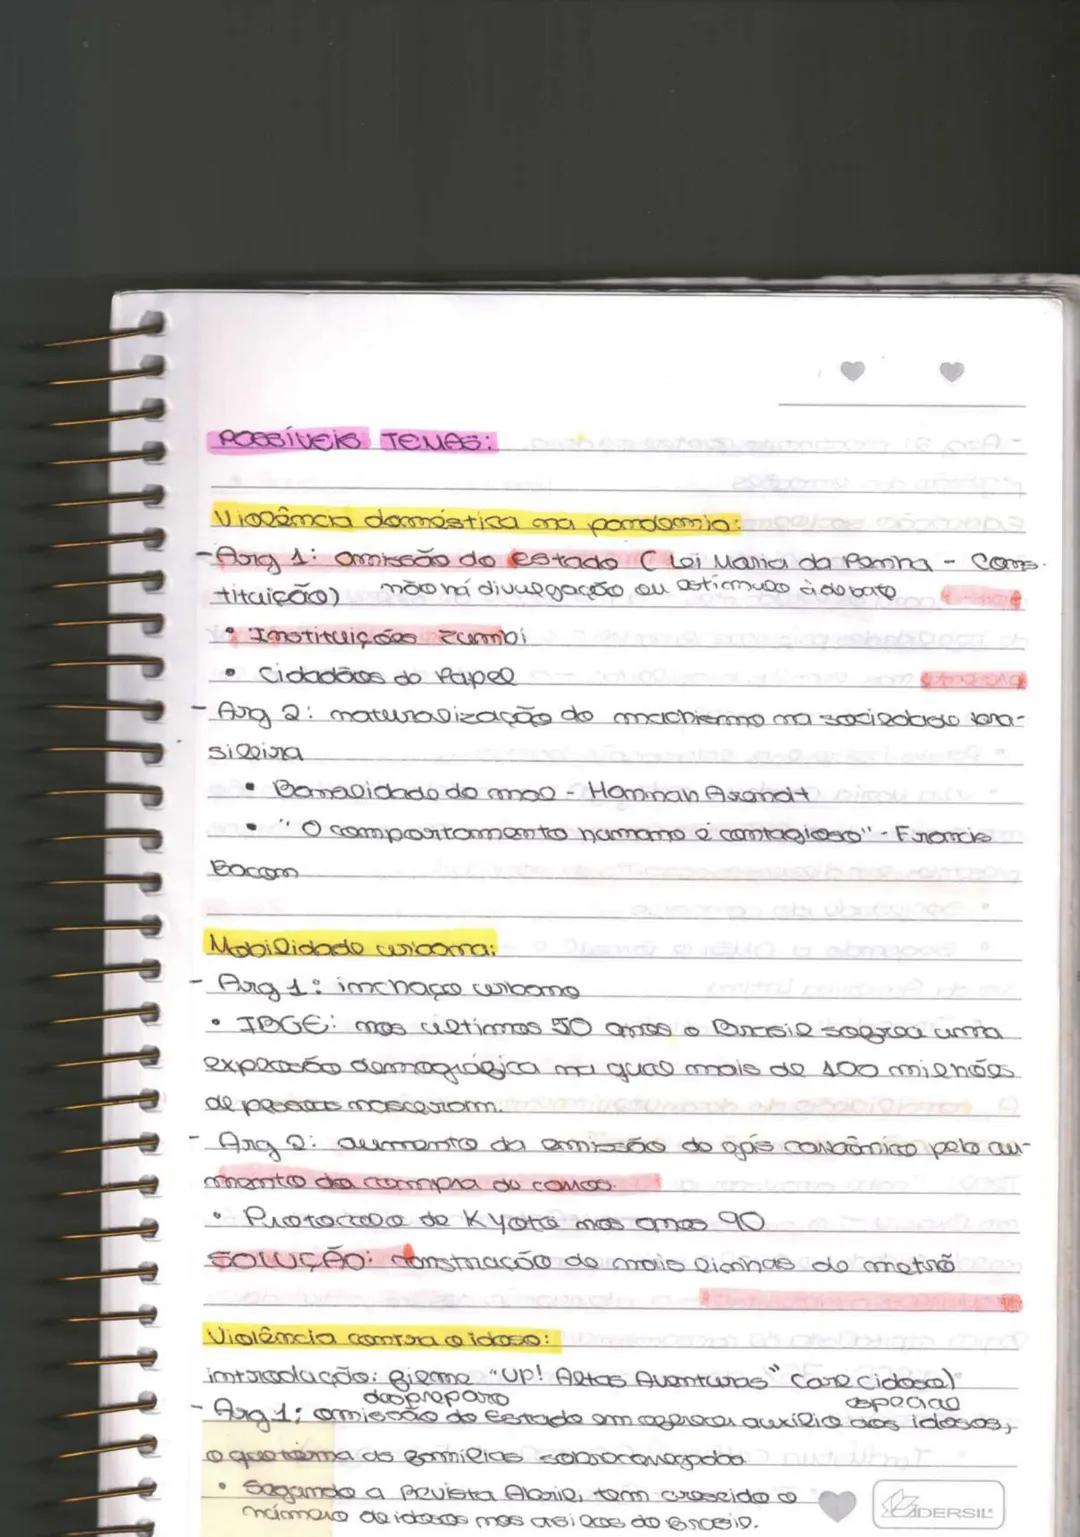 POSSÍVEIS TEMAS:
Violência doméstica na pandemia:
- Arg 1: omissão do estado (Lei Maria da Penha - Cons-
não há divulgação ou estímulo à debate
tituição)
• Instituições zumbi
• Cidadãos de Papel
- Arg 2: naturalização do machismo na sociedade bra-
sileira
• Banalidade do mal - Hannah Arendt
• "O comportamento humano é contagioso" - Francis
Bacon
Mobilidade urbana:
- Arg 1: inchaço urbano
• IBGE: nos últimos 50 anos o Brasil sofreu uma
explosão demográfica na qual mais de 100 milhões
de pessoas nasceram.
- Arg 2: aumento da emissão do gás carbônico pelo au-
mento da compra de carros.
• Protocolo de Kyoto nos anos 90
SOLUÇÃO: construção de mais linhas de metrô
Violência contra o idoso:
introdução: filme "UP! Altas Aventuras" (Carl idoso)
despreparo
especial
- Arg 1: omissão do Estado em oferecer auxílio aos idosos,
o que torna as famílias sobrecarregadas
• Segundo a Revista Abril, tem crescido o
número de idosos nos asilos do Brasil.
CADERSIL